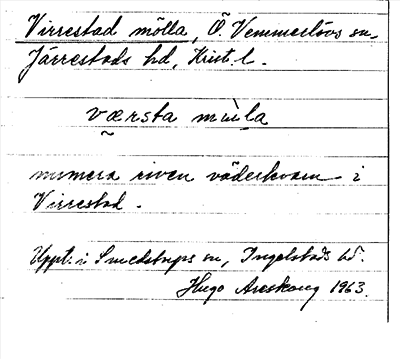 Virrestad mölla, Ö. Vemmerlövs sn,
Järrestads hd, Krist. l.
værsta mùla
numera riven väderkvarn i
Virrestad.
Uppt. i Smedstorps sn, Ingelstads hd.
Hugo Areskoug 1963.